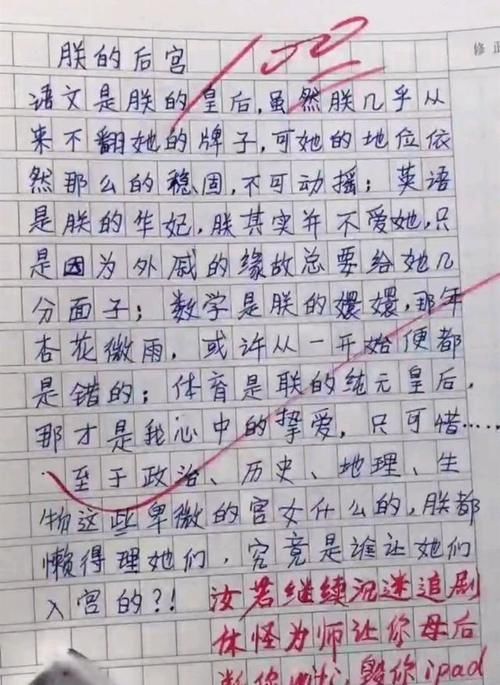 修正
100
朕的后宫
语文是朕的皇后，虽然朕几乎从
来不翻她的牌子，可她的地位依
然那么的稳固，不可动摇；英语
是朕的华妃，朕其实并不爱她，只
是因为外戚的缘故总要给她几
分面子；数学是朕的嬛嬛，那年
杏花微雨，或许从一开始便都
是错的；体育是联的纯元皇后，
那才是我心中的挚爱，只可惜……
至于政治、历史、地理、生
物这些卑微的宫女什么的，朕都
懒得理她们，究竟是谁让她们
入宫的？！
汝若继续沉迷追剧
休怪为师让你母后
断你wifi，毁你ipad